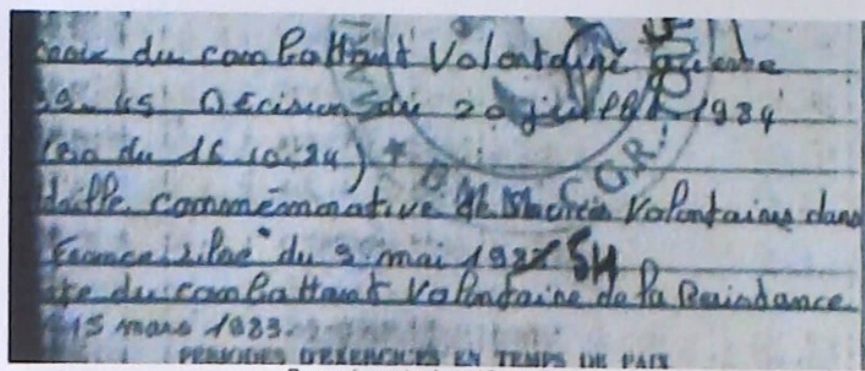 croix du combattant Volontaire guerre
39-45 Décision du 20 juillet 1984
du 16.10.84)
daille commémorative Services Volontaires dans
France Libre" du 3 mai 1987 54
te du combattant Volontaire de la Résistance
15 mars 1989.
PERIODES D'EXERCICES EN TEMPS DE PAIX
C.G.R.-